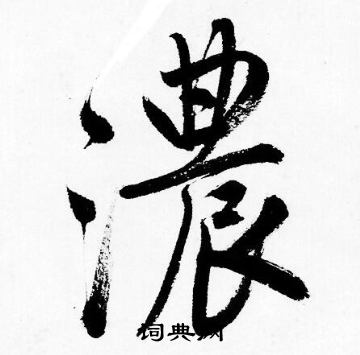 濃
词典网